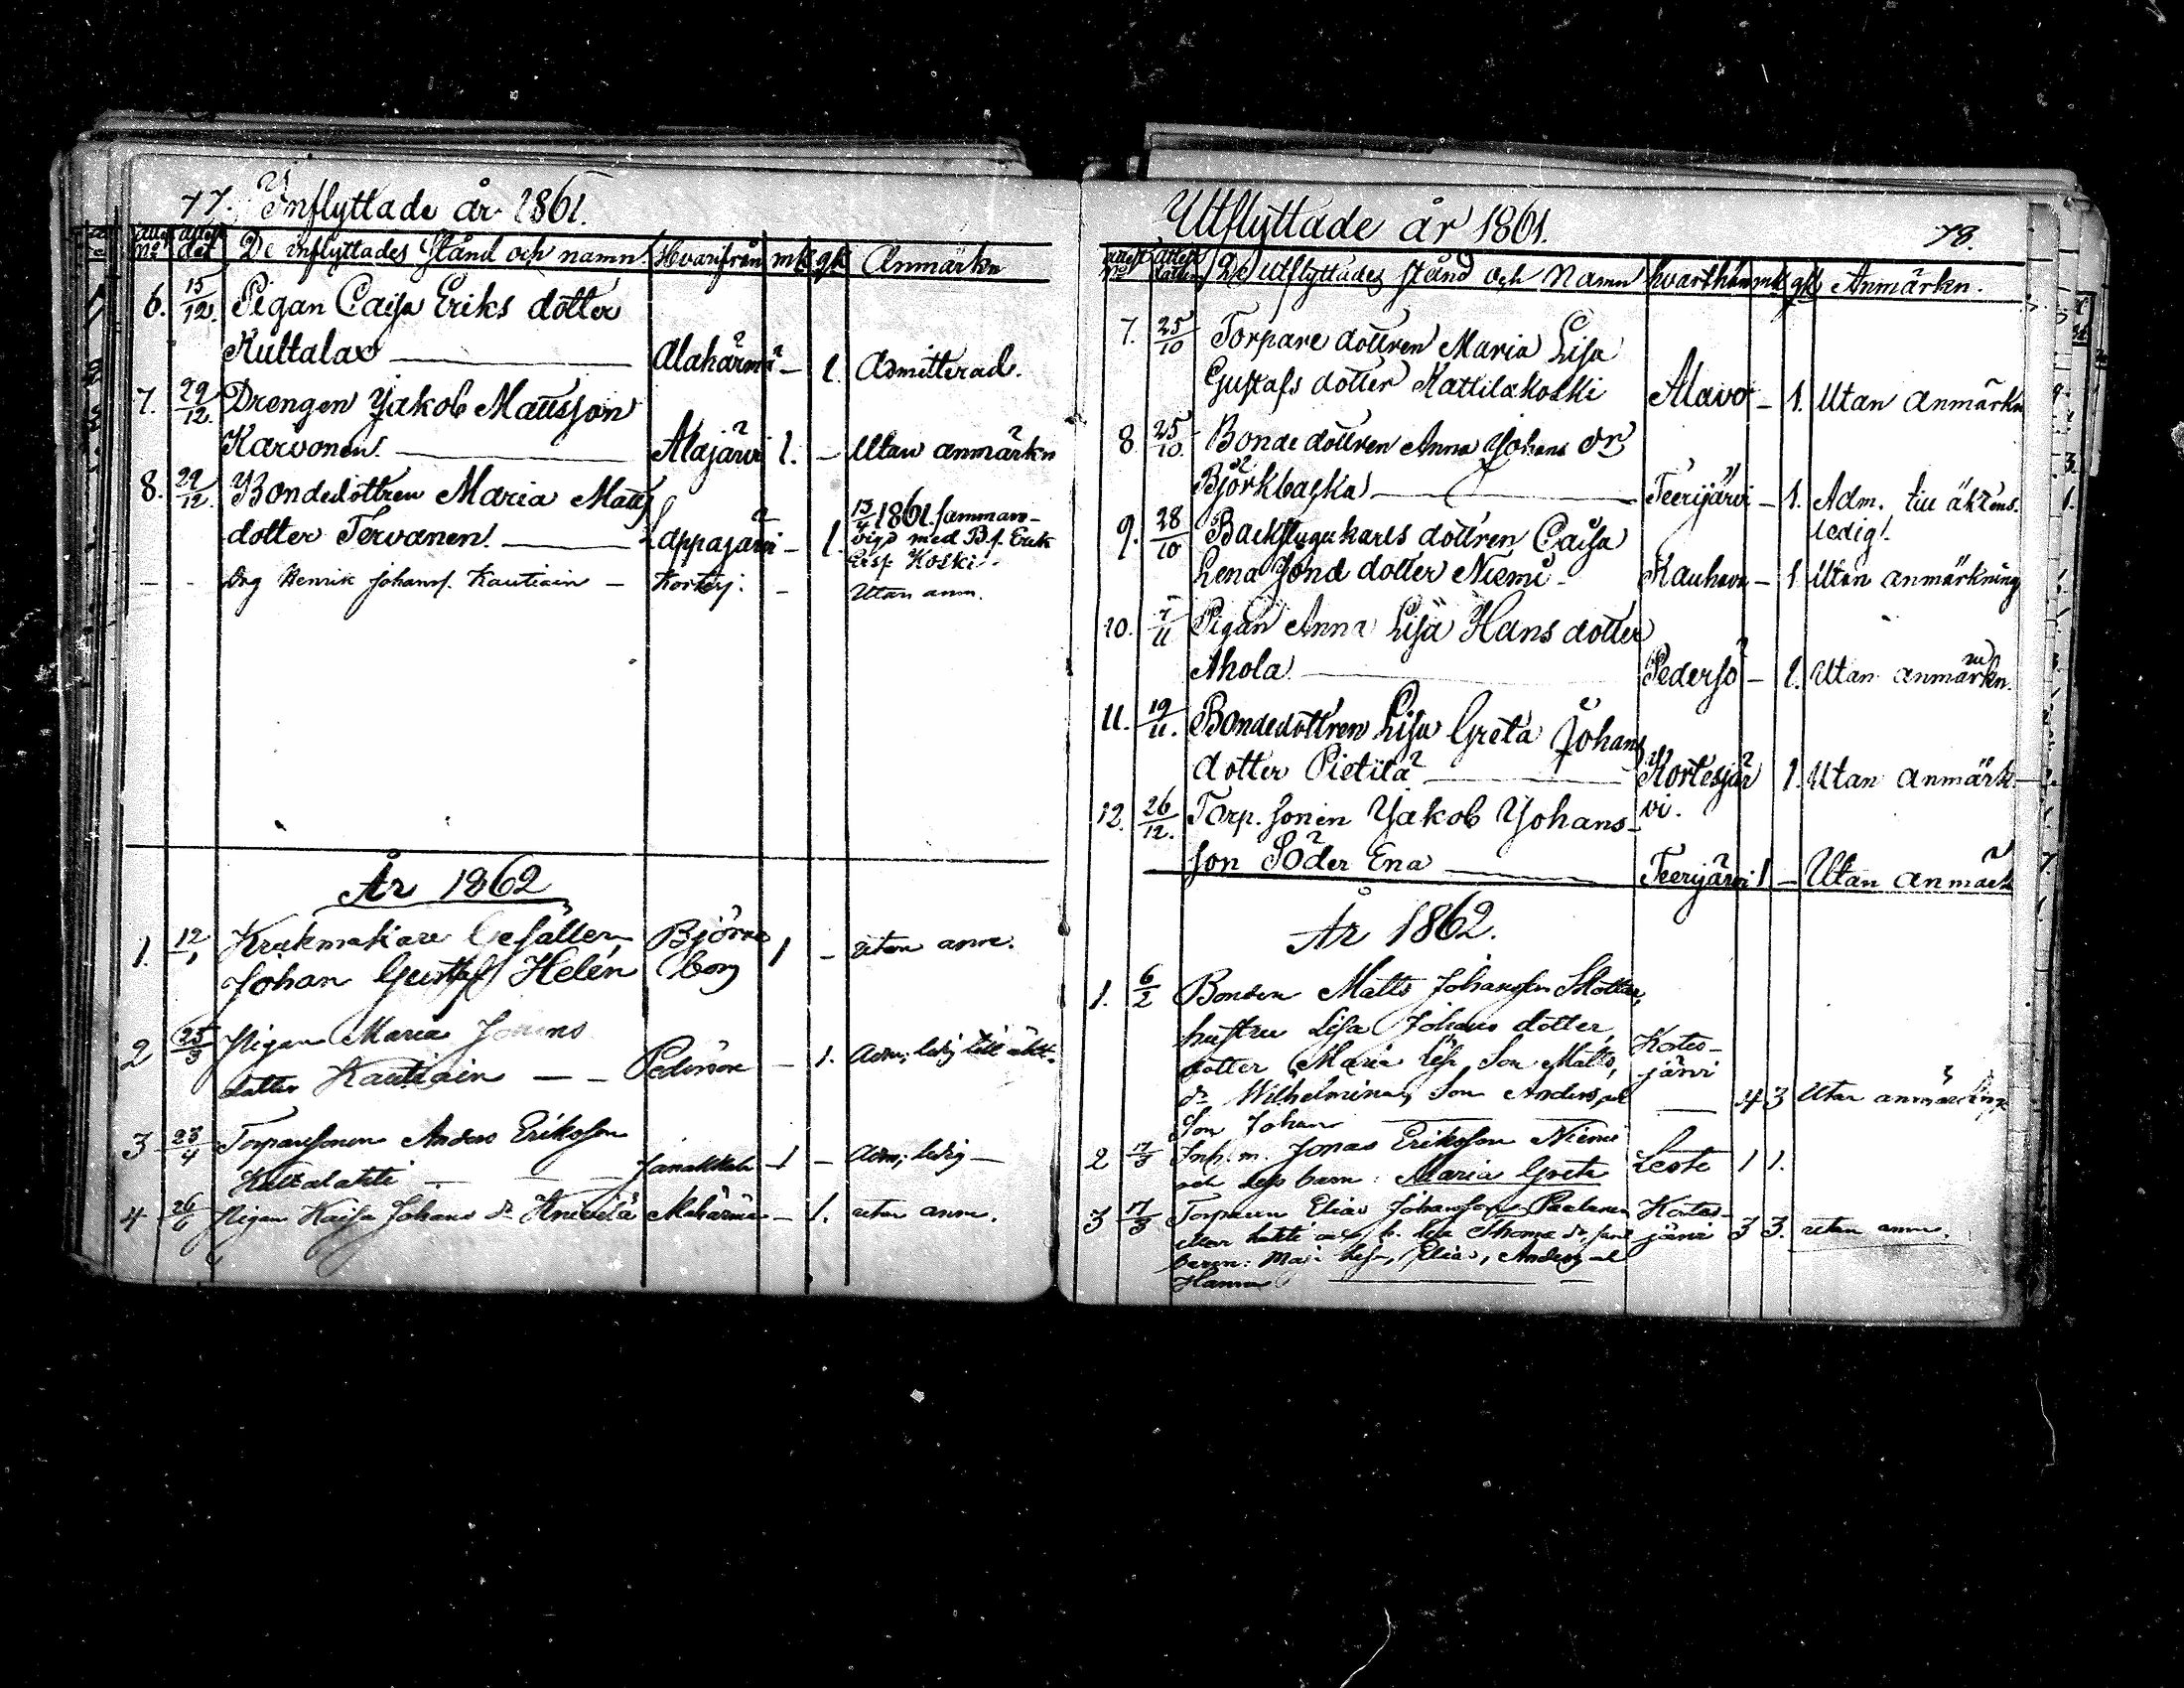 77. Inflyttade år 1861.
De inflyttades Stånd och namn. Hvarifrån mk gk Anmärkn
6. 15/12. Pigan Caisa Eriks dotter
Kultalax — Alahärmä — 1. Admitterad.
7. 29/12. Drengen Jakob Mattsson
Karvonen. — Alajärvi 1. — Utan anmärkn
8. 29/12. Bondedottren Maria Matts
dotter Tervanen. — Lappajärvi — 1.
15/4 1861. samman-
vigd med B.s. Erik
Koski.
— — Drg Henrik Johanss. Kautiain — Kortesj: — Utan anm.
År 1862
1. 12/1 Krukmakare Gesällen Björne
Johan Gustaf Helén borg 1 — utan anm.
2 25/3 Pigan Maria
dotter Kautiain — — Pedersöre — 1. Adm; ledig till äkt.
3 23/4 Torparesonen Anders Eriksson
Kultalahti — Janakkala 1 — Adm; ledig —
4 26/6 Pigan Kaisa Johans dr Knivilä Alahärmä — 1. utan anm.
Utflyttade år 1861.
78.
De utflyttades stånd och Namn hvarthän mk gk Anmärkn.
7. 25/10 Torpare dottren Maria Lisa
Gustafs dotter Kattilakoski Alavo — 1. Utan anmärkn
8. 25/10. Bonde dottren Anna Johans dr
Björkbacka — Teerijärvi — 1. Adm. till äktens.
ledig.
9. 28/10 Backstugukarls dottren Caisa
Lena Jona dotter Niemi — Kauhava — 1 Utan anmärkning
10. 7/11 Pigan Anna Lisa Hans dotter
Ahola — Pedersö — 1. Utan anmärkn.
11. 19/11. Bondedottren Lisa Greta Johans
dotter Pietilä — Kortesjär 1. Utan anmärk.
vi.
12. 26/12. Torp. sonen Jakob Johans-
son Söder Ena — Teerijärvi 1 — Utan anmärk
År 1862.
1. 6/2 Bonden Matts Johansson
hustru Lisa Johans dotter,
dotter Maria Lisa, Son Matts, Kortes-
järvi
dr Wilhelmina, Son Anders, och — 4 3 Utan anmärkning
Son Johan —
2 17/3 Inh. m. Jonas Eriksson Niemi
och dess barn: Maria Greta Lesti 1 1.
3 17/3 Torparen Elias Johansson Kortes-
järvi 3 3. utan anm.
barn: Maja Lisa, Elias, Anders och
Hanna —